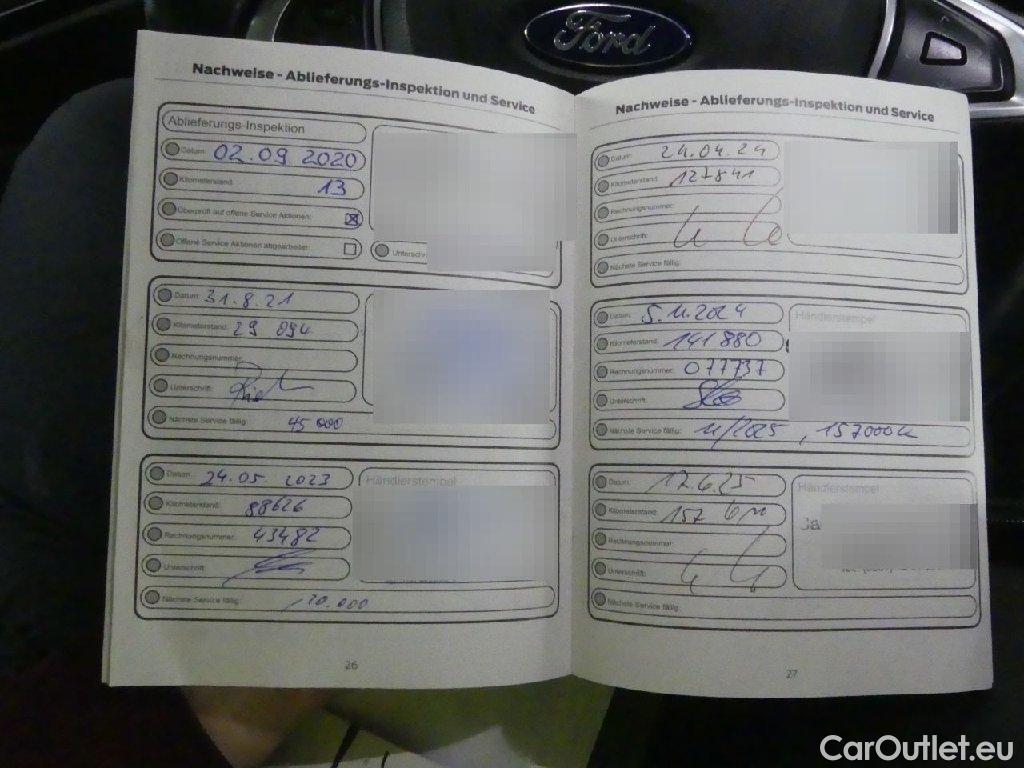 Ford
Nachweise - Ablieferungs-Inspektion und Service
Ablieferungs-Inspektion
Datum: 02.09 2020
Kilometerstand: 13
Überprüft auf offene Service Aktionen:
Offene Service Aktionen abgearbeitet:
Unterschr
Datum: 31.8.21
Kilometerstand: 29 094
Rechnungsnummer:
Unterschrift:
Nächste Service fällig: 45 000
Datum: 24.05. 2023
Händlerstempel
Kilometerstand: 88626
Rechnungsnummer: 43482
Unterschrift:
Nächste Service fällig:
26
Nachweise - Ablieferungs-Inspektion und Service
Datum: 24.04.24
Kilometerstand: 127841
Rechnungsnummer:
Unterschrift:
Nächste Service fällig:
Datum: 5.11.2024
Händlerstempel
Kilometerstand: 141880
Rechnungsnummer: 077737
Unterschrift:
Nächste Service fällig: 11/2025, 157000
Datum: 17.6.25
Händlerstempel
Kilometerstand: 157
Rechnungsnummer:
Unterschrift:
Nächste Service fällig:
27
CarOutlet.eu